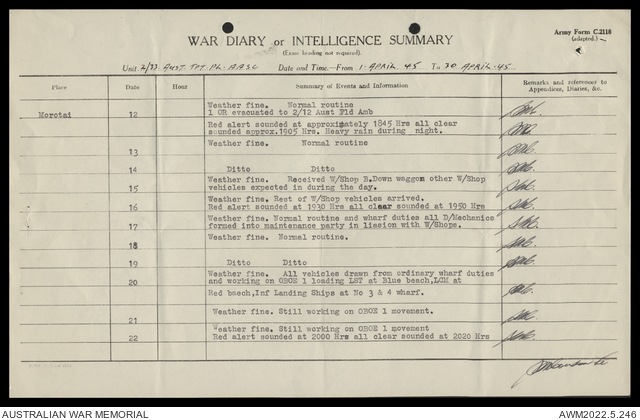 Army Form C.2118
(adapted.)
WAR DIARY or INTELLIGENCE SUMMARY
(Erase heading not required).
Unit 2/33 AUST. TPT. PL. A.A.S.C. Date and Time.—From 1. APRIL. 45 To 30 APRIL. 45.
Place Date Hour Summary of Events and Information Remarks and references to Appendices, Diaries, &c.
Weather fine. Normal routine
Morotai 12 1 OR evacuated to 2/12 Aust Fld Amb
Red alert sounded at approximately 1845 Hrs all clear
sounded approx.1905 Hrs. Heavy rain during night.
13 Weather fine. Normal routine
14 Ditto Ditto
Weather fine. Received W/Shop B.Down waggon other W/Shop
15 vehicles expected in during the day.
Weather fine. Rest of W/Shop vehicles arrived.
16 Red alert sounded at 1930 Hrs all clear sounded at 1950 Hrs
Weather fine. Normal routine and wharf duties all D/Mechanics
17 formed into maintenance party in liasion with W/Shops.
18 Weather fine. Normal routine.
19 Ditto Ditto
Weather fine. All vehicles drawn from ordinary wharf duties
20 and working on OBOE 1 loading LST at Blue beach,LCM at
Red beech,Inf Landing Ships at No 3 & 4 wharf.
21 Weather fine. Still working on OBOE 1 movement.
Weather fine. Still working on OBOE 1 movement
22 Red alert sounded at 2000 Hrs all clear sounded at 2020 Hrs
AUSTRALIAN WAR MEMORIAL AWM2022.5.246